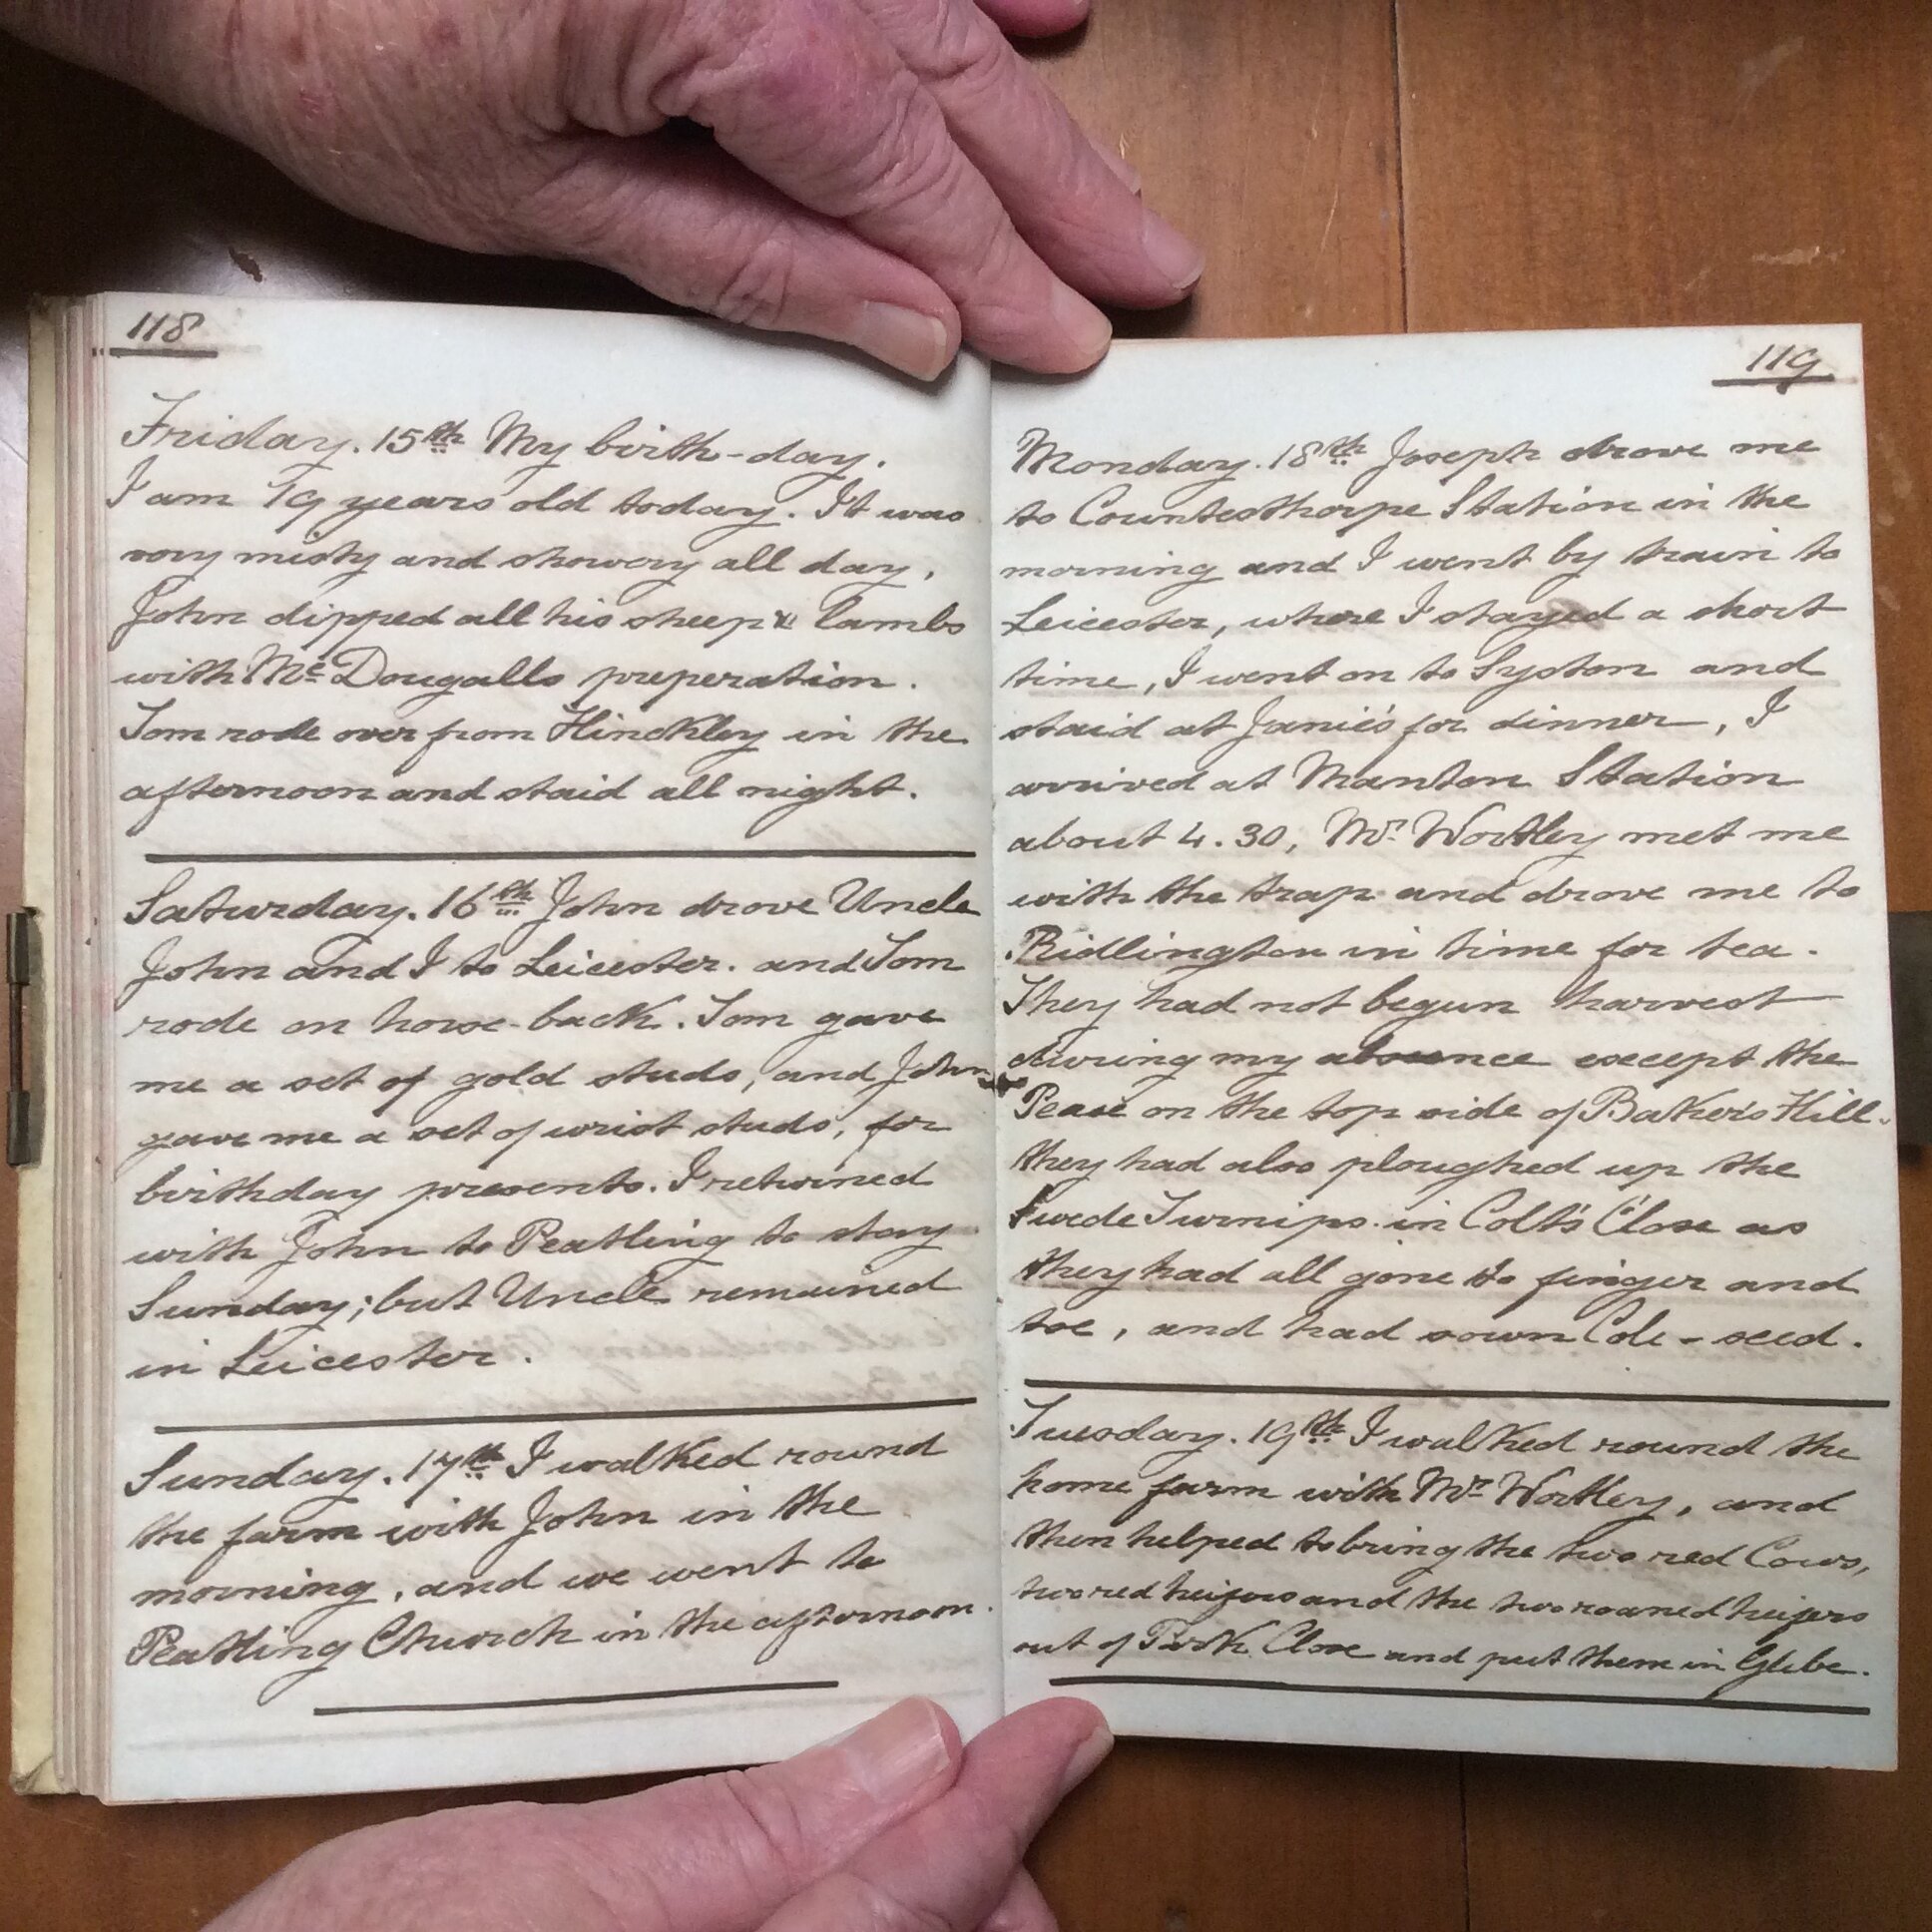 118
Friday. 15th My birth-day.
I am 19 years old today. It was
very misty and showery all day,
John dipped all his sheep & lambs
with Mc Dougalls preperation.
Tom rode over from Hinckley in the
afternoon and staid all night.
Saturday. 16th John drove Uncle
John and I to Leicester. and Tom
rode on horse-back. Tom gave
me a set of gold studs, and John
gave me a set of wrist studs, for
birthday presents. I returned
with John to Peatling to stay
Sunday; but Uncle remained
in Leicester.
Sunday. 17th I walked round
the farm with John in the
morning, and we went to
Peatling Church in the afternoon.
119
Monday. 18th Joseph drove me
to Countesthorpe Station in the
morning and I went by train to
Leicester, where I stayed a short
time, I went on to Syston and
staid at Janie's for dinner, I
arrived at Manton Station
about 4.30, Mr Wortley met me
with the trap and drove me to
Ridlington in time for tea.
They had not begun harvest
during my absence except the
Pease on the top side of Baker's Hill.
they had also ploughed up the
Swede Turnips in Colt's Close as
they had all gone to finger and
toe, and had sown Cole-seed.
Tuesday. 19th I walked round the
home farm with Mr Wortley, and
then helped to bring the two red Cows,
two red heifers and the two roaned heifers
out of Park Close and put them in Glebe.